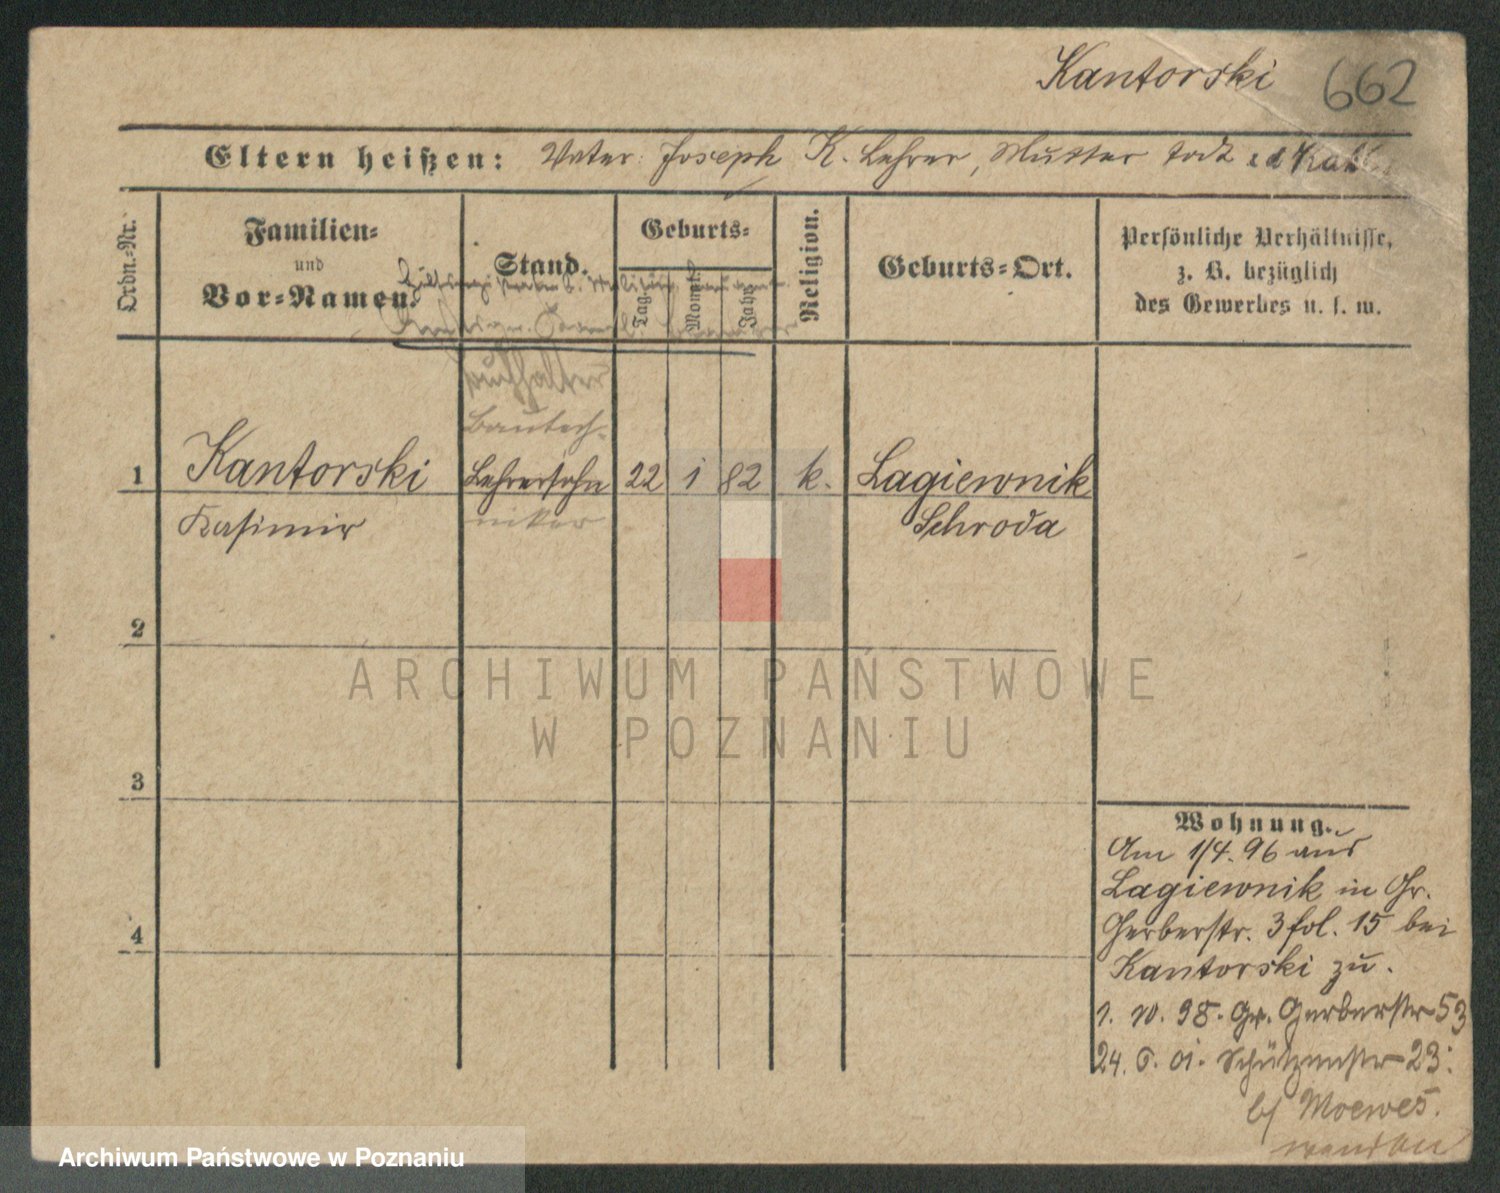 Kantorski 662
Eltern heißen: Vater: Joseph K. Lehrer, Mutter todt
Ordn.-Nr.
Familien-
und
Vor-Namen.
Stand.
Geburts-
Tag.
Monat.
Jahr.
Religion.
Geburts-Ort.
Persönliche Verhältnisse,
z. B. bezüglich
des Gewerbes u. s. w.
Bautech-
1 Kantorski Lehrersohn 22 1 82 k. Lagiewnik
Kasimir niker Schroda
2
3
4
Wohnung.
Am 1/4. 96 aus
Lagiewnik in Gr.
Gerberstr. 3 fol. 15 bei
Kantorski zu.
1. 10. 98. Gr. Gerberstr 53
24. 6. 01. Schützenstr 23.
b/ Moewes.
wenden
ARCHIWUM PAŃSTWOWE
W POZNANIU
Archiwum Państwowe w Poznaniu